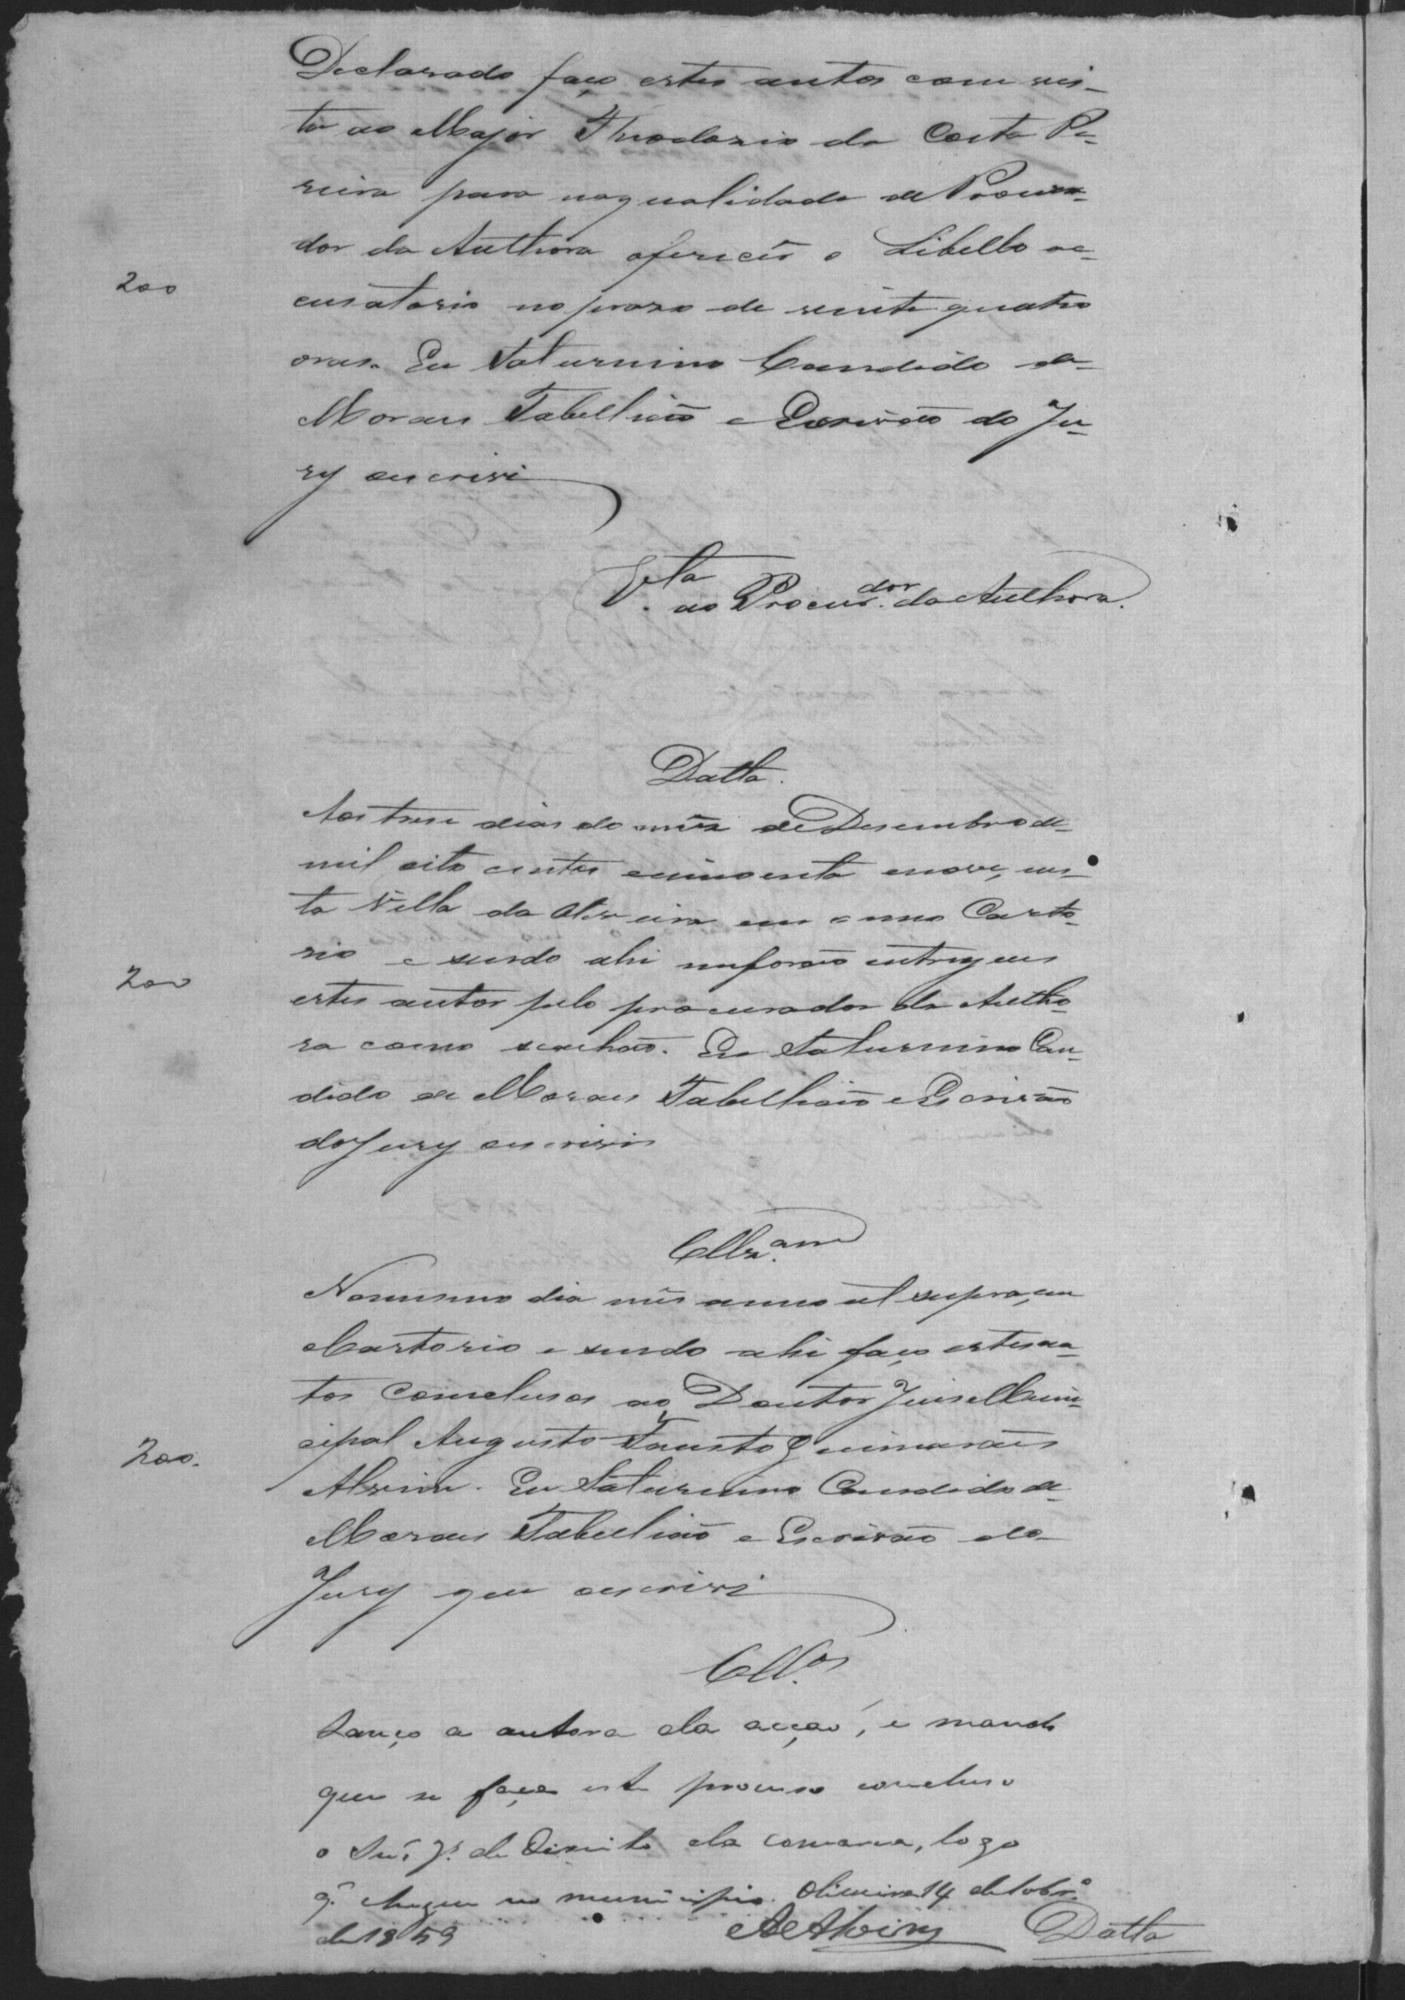 Declarado faço estes autos com vis-
ta ao Major Theodozio da Costa Pe-
reira para na qualidade de Procura-
dor da Authora oferecer o Libello ac-
200
cusatorio no prazo de vinte quatro
oras. Eu Saturnino Candido de
Moraes Tabellião e Escrivão do Ju-
ry escrivi
V.ta ao Procur.dor da Authora.
Datta.
Aos trese dias do mez de Desembro de
mil oito centos cincoenta e nove, nes-
ta Villa da Oliveira em o meu Carto-
rio e sendo ahi me forão entregues
200
estes autos pelo procurador da Autho-
ra como se acha. Eu Saturnino Can-
dido de Moraes Tabellião e Escrivão
do Jury escrivi
Cllz.am
No mesmo dia mes anno ut supra, em
Cartorio e sendo ahi faço estes au-
tos conclusos ao Doutor Juis Muni-
cipal Augusto Fausto Guimarães
200.
Alvim. Eu Saturnino Candido de
Moraes Tabellião e Escrivão do
Jury que escrivi
Cll.os
Lanço a autora da acção, e mando
que se faça este processo concluso
o Snr. J. de Direito da comarca, logo
q. chegue no municipio. Oliveira 14 de
de 1859
AeAlvim Datta